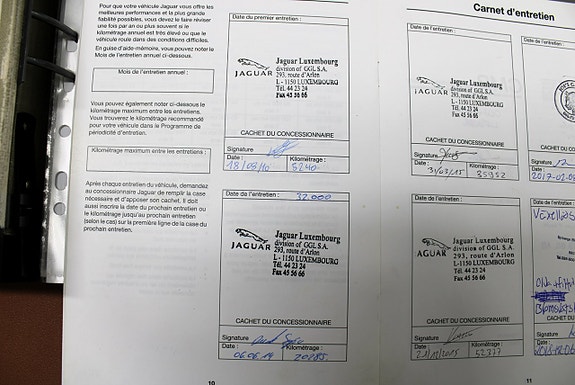 Pour que votre véhicule Jaguar vous offre les
meilleures performances et la plus grande
fiabilité possibles, vous devez le faire réviser
une fois par an ou plus souvent si le
kilométrage annuel est très élevé ou que le
véhicule roule dans des conditions difficiles.
En guise d'aide-mémoire, vous pouvez noter le
Mois de l'entretien annuel ci-dessous.
Mois de l'entretien annuel :
Vous pouvez également noter ci-dessous le
kilométrage maximum entre les entretiens.
Vous trouverez le kilométrage recommandé
pour votre véhicule dans le Programme de
périodicité d'entretien.
Kilométrage maximum entre les entretiens :
Après chaque entretien du véhicule, demandez
au concessionnaire Jaguar de remplir la case
nécessaire et d'apposer son cachet. Il doit
aussi inscrire la date du prochain entretien ou
le kilométrage jusqu'au prochain entretien
(selon le cas) sur la première ligne de la case du
prochain entretien.
Date du premier entretien :
JAGUAR
Jaguar Luxembourg
division of GGL S.A.
293, route d'Arlon
L - 1150 LUXEMBOURG
Tél. 44 23 24
Fax 45 56 66
CACHET DU CONCESSIONNAIRE
Signature
Date : Kilométrage :
18/08/10 5240
Date de l'entretien : 32.000
JAGUAR
Jaguar Luxembourg
division of GGL S.A.
293, route d'Arlon
L - 1150 LUXEMBOURG
Tél. 44 23 24
Fax 45 56 66
CACHET DU CONCESSIONNAIRE
Signature
Date : Kilométrage :
06.06.14 20285
10
Carnet d'entretien
Date de l'entretien :
JAGUAR
Jaguar Luxembourg
division of GGL S.A.
293, route d'Arlon
L - 1150 LUXEMBOURG
Tél. 44 23 24
Fax 45 56 66
CACHET DU CONCESSIONNAIRE
Signature
Date : Kilométrage :
31/03/15 35952
Date de l'entretien :
JAGUAR
Jaguar Luxembourg
division of GGL S.A.
293, route d'Arlon
L - 1150 LUXEMBOURG
Tél. 44 23 24
Fax 45 56 66
CACHET DU CONCESSIONNAIRE
Signature
Date : Kilométrage :
52377
11
Date de l'entretien
CACHET DU
Signature
Date :
2017-02-0
Date de l'entretien
CACHET DU
Signature
Date :